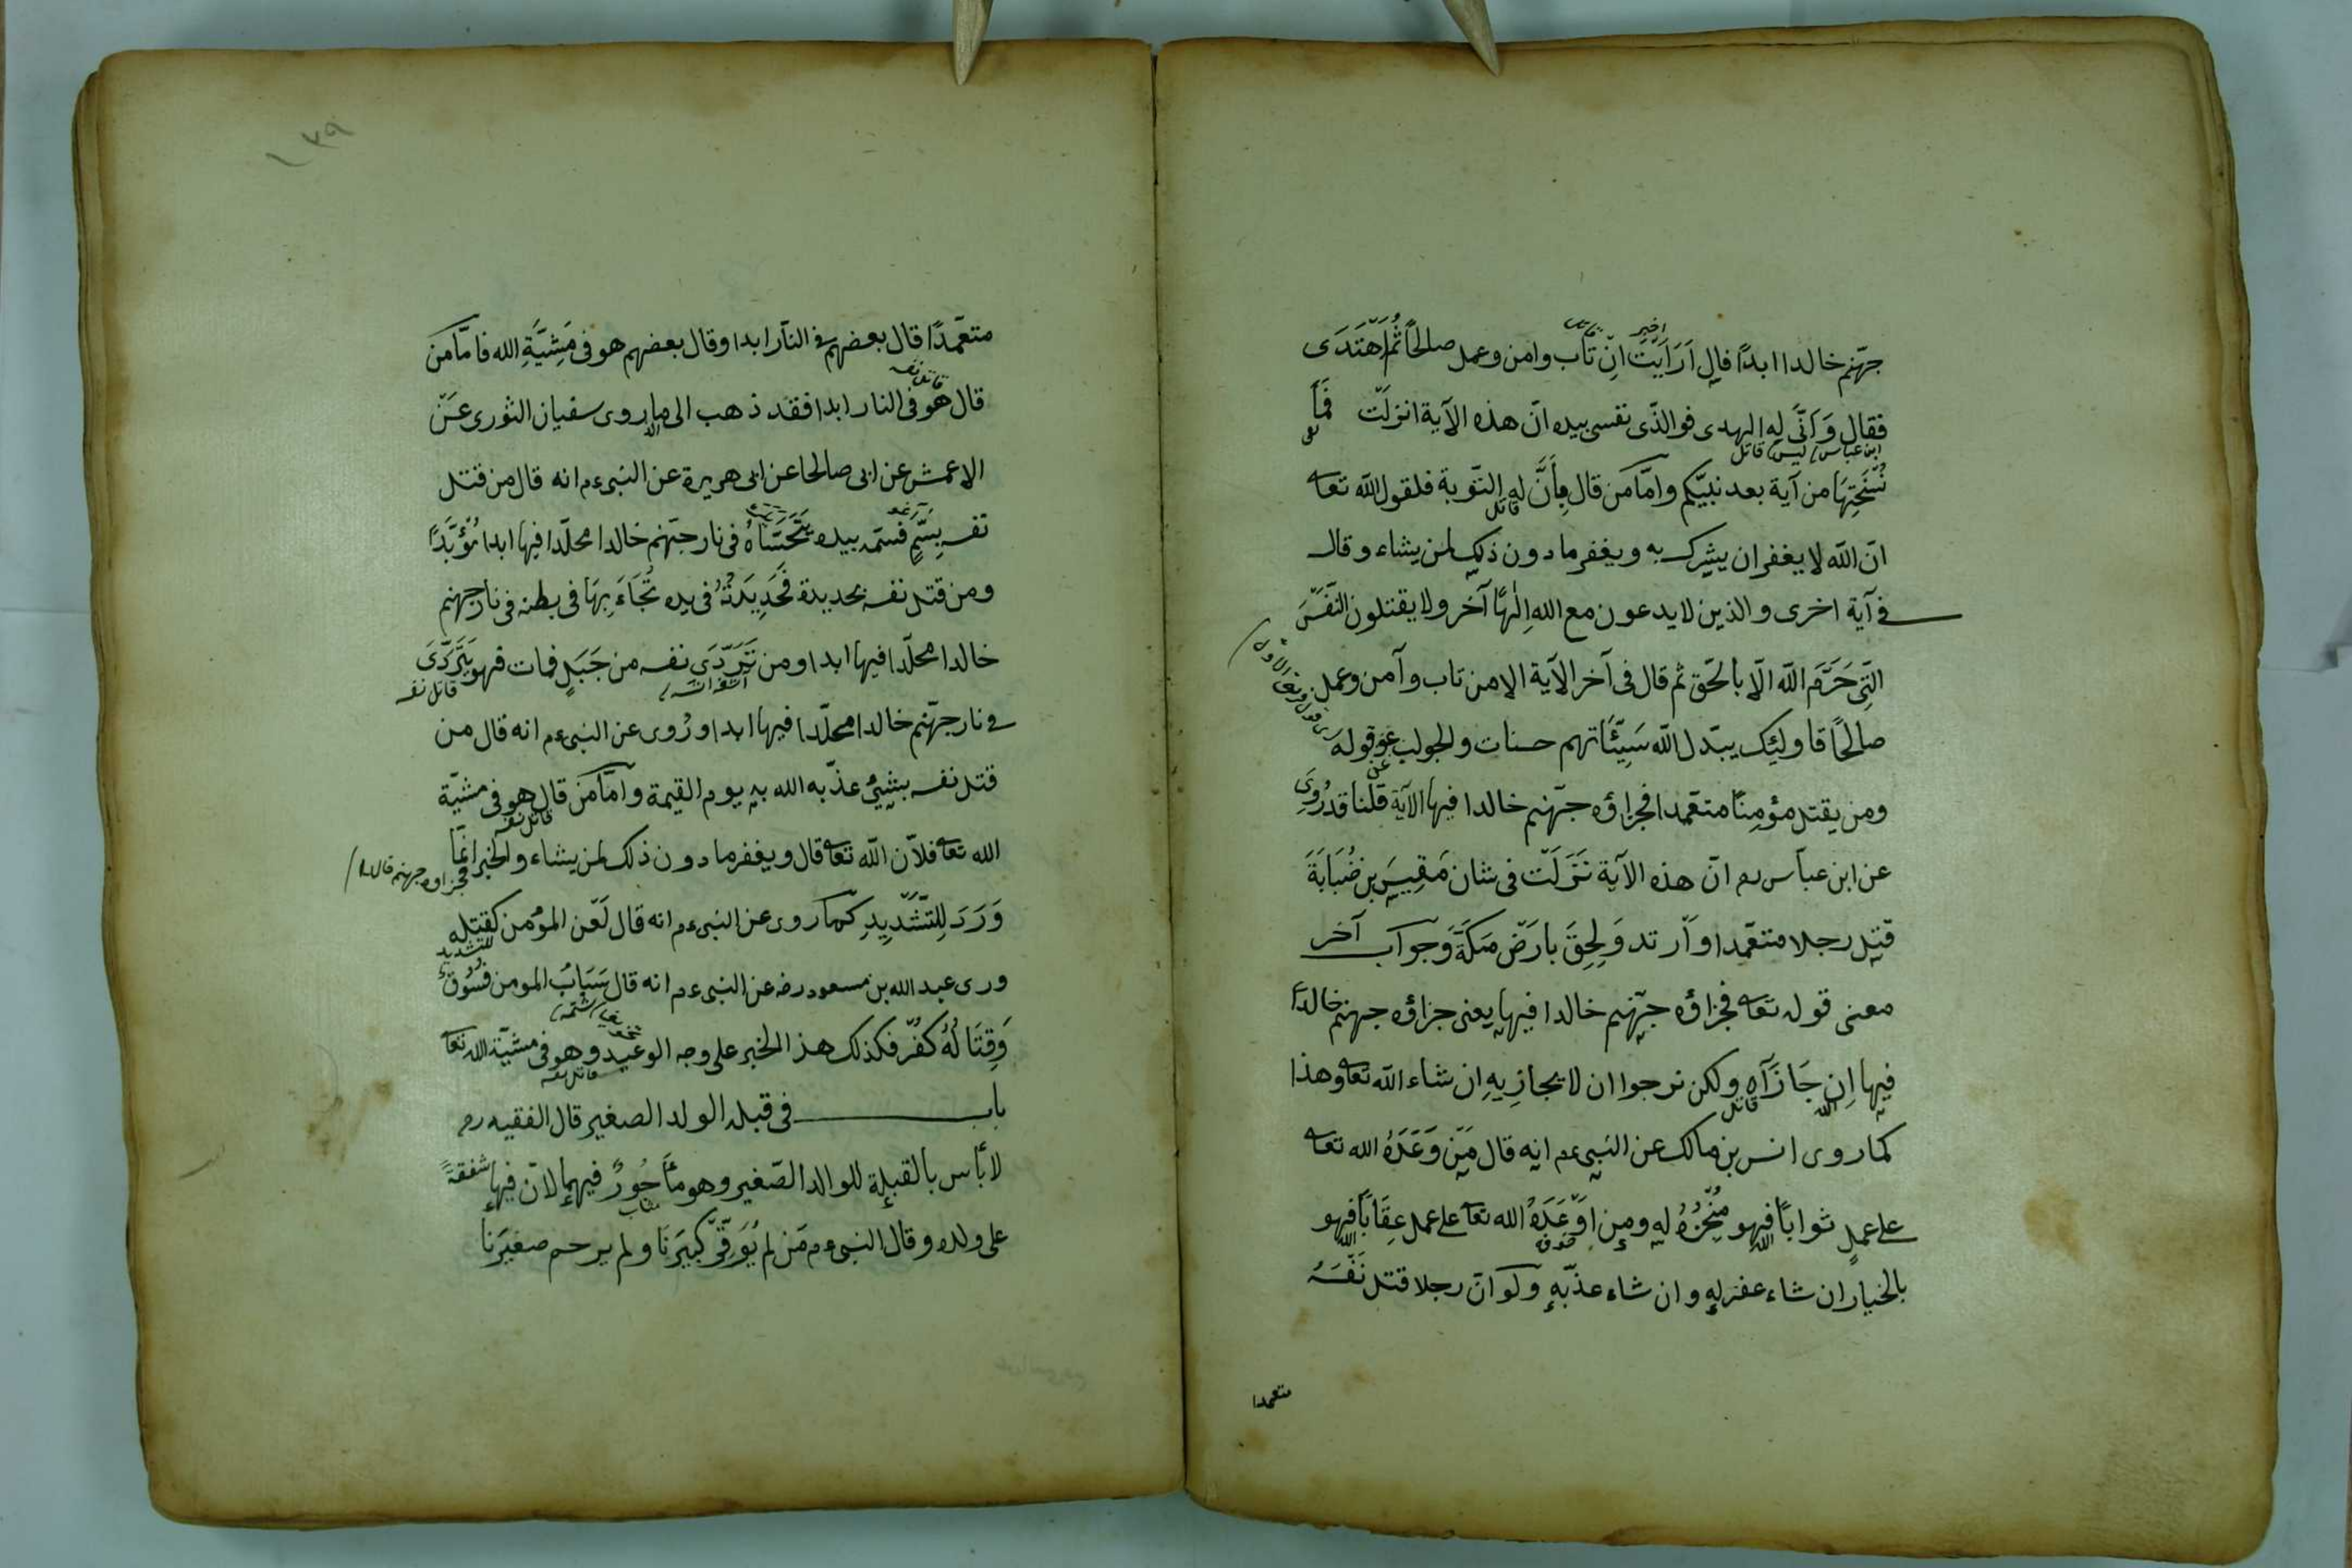 جهّنم خالدا ابدًا قال اَرَاَيْتَ اِنْ تَاب وامن وعمل صالحًا ثُمَّ اهْتَدَى
فقال وَاَنَّى له الهدى فوالذّى نفسى بيده انّ هذه الآية انزلَتْ فَمَا
نُسْخَتِهَا من آية بعد نبيّكم وامّا من قال بِاَنَّ له التّوبة فلقول اللّه تعا
انّ اللّه لا يغفر ان يشرك به ويغفر ما دون ذلك لمن يشاء وقال
فى آية اخرى والذين لا يدعون مع الله اِلٰهًا آخر ولا يقتلون النّفْسَ
الّتِى حَرَّمَ اللّه الّا بالحّق ثم قال فى آخر الآية الا من تاب وآمن وعمل
صالحًا فاولئِك يبّدل اللّه سَيِّئَاتهم حسنات والجواب عن قوله
ومن يقتل مؤمِنًا متعّمدا فجزاؤه جهّنم خالدا فيها الآية قلنا قد رُوِىَ
عن ابن عبّاس رم انّ هذه الآية نَزَلَتْ فى شان مَقِيسِ بن ضُبَابَةَ
قتل رجلا متعّمدا وآرتد وَلِحقَ بارَضْ مَكَةَ وجواب آخر
معنى قوله تعا فجزاؤه جهّنم خالدا فيها يعنى جزاؤه جهنم خالدًا
فيها اِن جَازَآه ولكن نرجوا ان لا يجازِيهِ ان شاء اللّه تعا وهذا
كما روى انس بن مالك عن النبى عم انه قال مَنْ وَعَدَهُ الله تعا
على عملٍ ثوابًا فهو مُنْجِزُهُ له ومن اوْعَدَهُ الله تعا على عمل عِقَابًا فهو
بالخيار ان شاء عفر له وان شاء عذّبه ولو انّ رجلا قتل نَفْسَهُ
متعمدا
متعّمدًا قال بعضهم فى النّار ابدا وقال بعضهم هو فى مَشِيَّةِ الله فامّا من
قال هو فى النار ابدا فقد ذهب الى ما روى سفيان الثورى عَنْ
الاعمش عن ابى صالحا عن ابى هريرة عن النبى عم انه قال من قتل
نفسه بِسَمٍّ فسّمه بيده يَتَحَسَّاهُ فى نار جهّنم خالدا مخلّدا فيها ابدا مُؤَبَّدًا
ومن قتل نفسه بحديدة فَحَدِيدَتُهُ فى يده تُجَاءَ بِهَا فى بطنه فى نار جهنم
خالدا مخلّدا فيها ابدا ومن تَرَدَّى نفسه من جَبَلٍ فمات فهو يَتَرَدَّى
فى نار جهّنم خالدا مخلّدا فيها ابدا ورُوى عن النبى عم انه قال من
قتل نفسه بشيئٍ عذّبه الله به يوم القيمة وامّا من قال هو فى مشيّة
الله تعا فلاّن اللّه تعا قال ويغفر ما دون ذلك لمن يشاء والخبر انمّا
وَرَدَ لِلتَّشْدِيدِ كما روى عن النبى عم انه قال لَعْن المؤمن كقتله
ورى عبد الله بن مسعود رضه عن النبى عم انه قال سَبَابُ المومن فُسُوق
وَقِتَالُهُ كُفْر فكذلك هذ الخبر على وجه الوعيد وهو فى مشيّة الله تعا
باب فى قبلة الولد الصغير قال الفقيه رم
لا بأس بالقبلة للوالد الصّغير وهو مأجُورٌ فيهما لانّ فيها شفقةً
على ولده وقال النبى عم مَن لم يُوَقِّرْ كَبيرَنَا ولم يرحم صغيرَنا